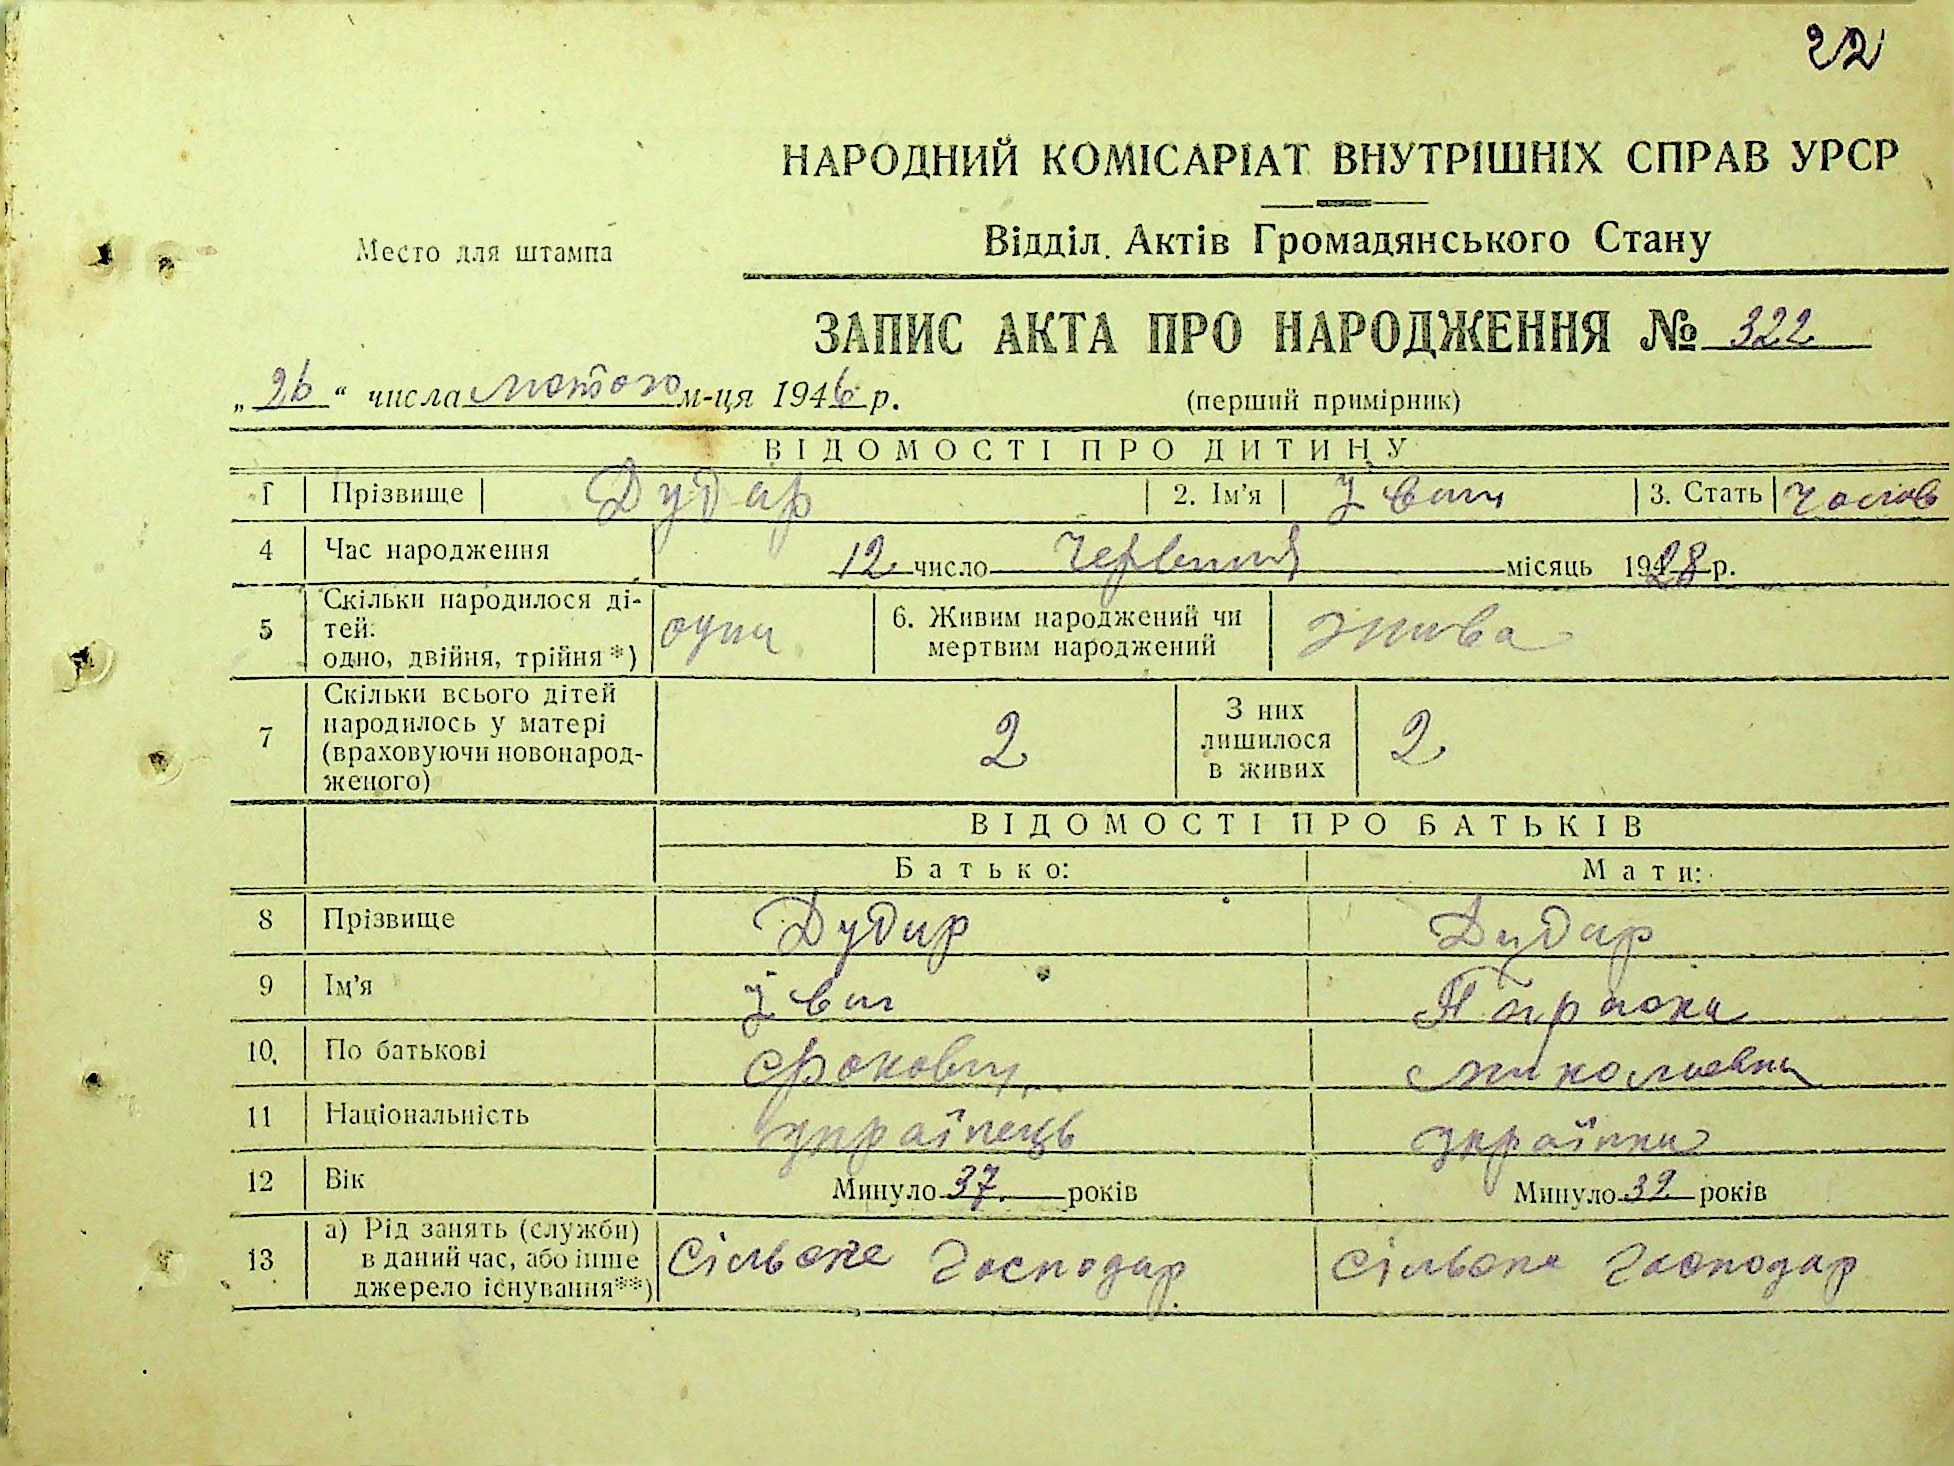 22
НАРОДНИЙ КОМІСАРІАТ ВНУТРІШНІХ СПРАВ УРСР
Место для штампа
Відділ Актів Громадянського Стану
ЗАПИС АКТА ПРО НАРОДЖЕННЯ № 322
„26“ числа лютого м-ця 1946 р.
(перший примірник)
ВІДОМОСТІ ПРО ДИТИНУ
1 Прізвище Дудар 2. Ім'я Іван 3. Стать чолов
4 Час народження 12 число червня місяць 1928 р.
5 Скільки народилося ді-
тей:
одно, двійня, трійня*)
6. Живим народжений чи
мертвим народжений
жива
7 Скільки всього дітей
народилось у матері
(враховуючи новонарод-
женого)
2
З них
лишилося
в живих
2
ВІДОМОСТІ ПРО БАТЬКІВ
Батько: Мати:
8 Прізвище Дудар Дудар
9 Ім'я Іван Параска
10. По батькові Миколаевна
11 Національність українець українка
12 Вік Минуло 37 років Минуло 39 років
13 а) Рід занять (служби)
в даний час, або інше
джерело існування**)
Сільске Господар Сільске Господар